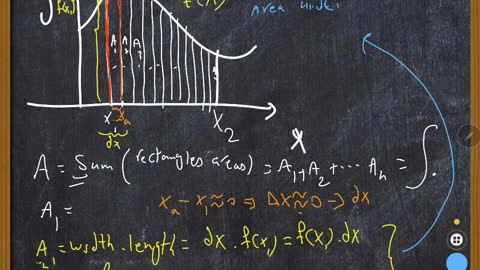 f(x₁)
area under
A₁ A₂ A₃ Aₙ
x₁ xₐ
dx
x₂
x
A = Sum (rectangles areas) = A₁ + A₂ + ... Aₙ = ∫.
xₐ - x₁ ≈ 0 ⇒ Δx ≈ 0 → dx
A₁ =
A₁ = width . length = dx . f(x₁) = f(x₁) . dx